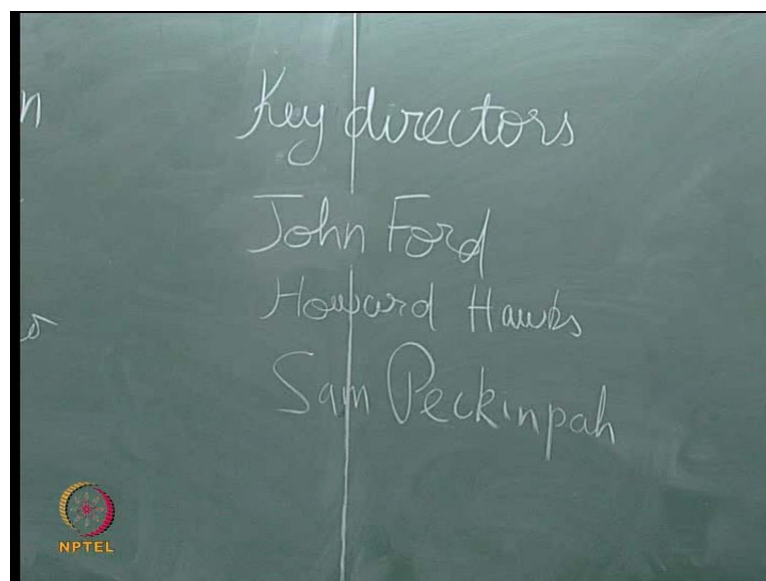 n
Key directors
John Ford
Howard Hawks
Sam Peckinpah
NPTEL